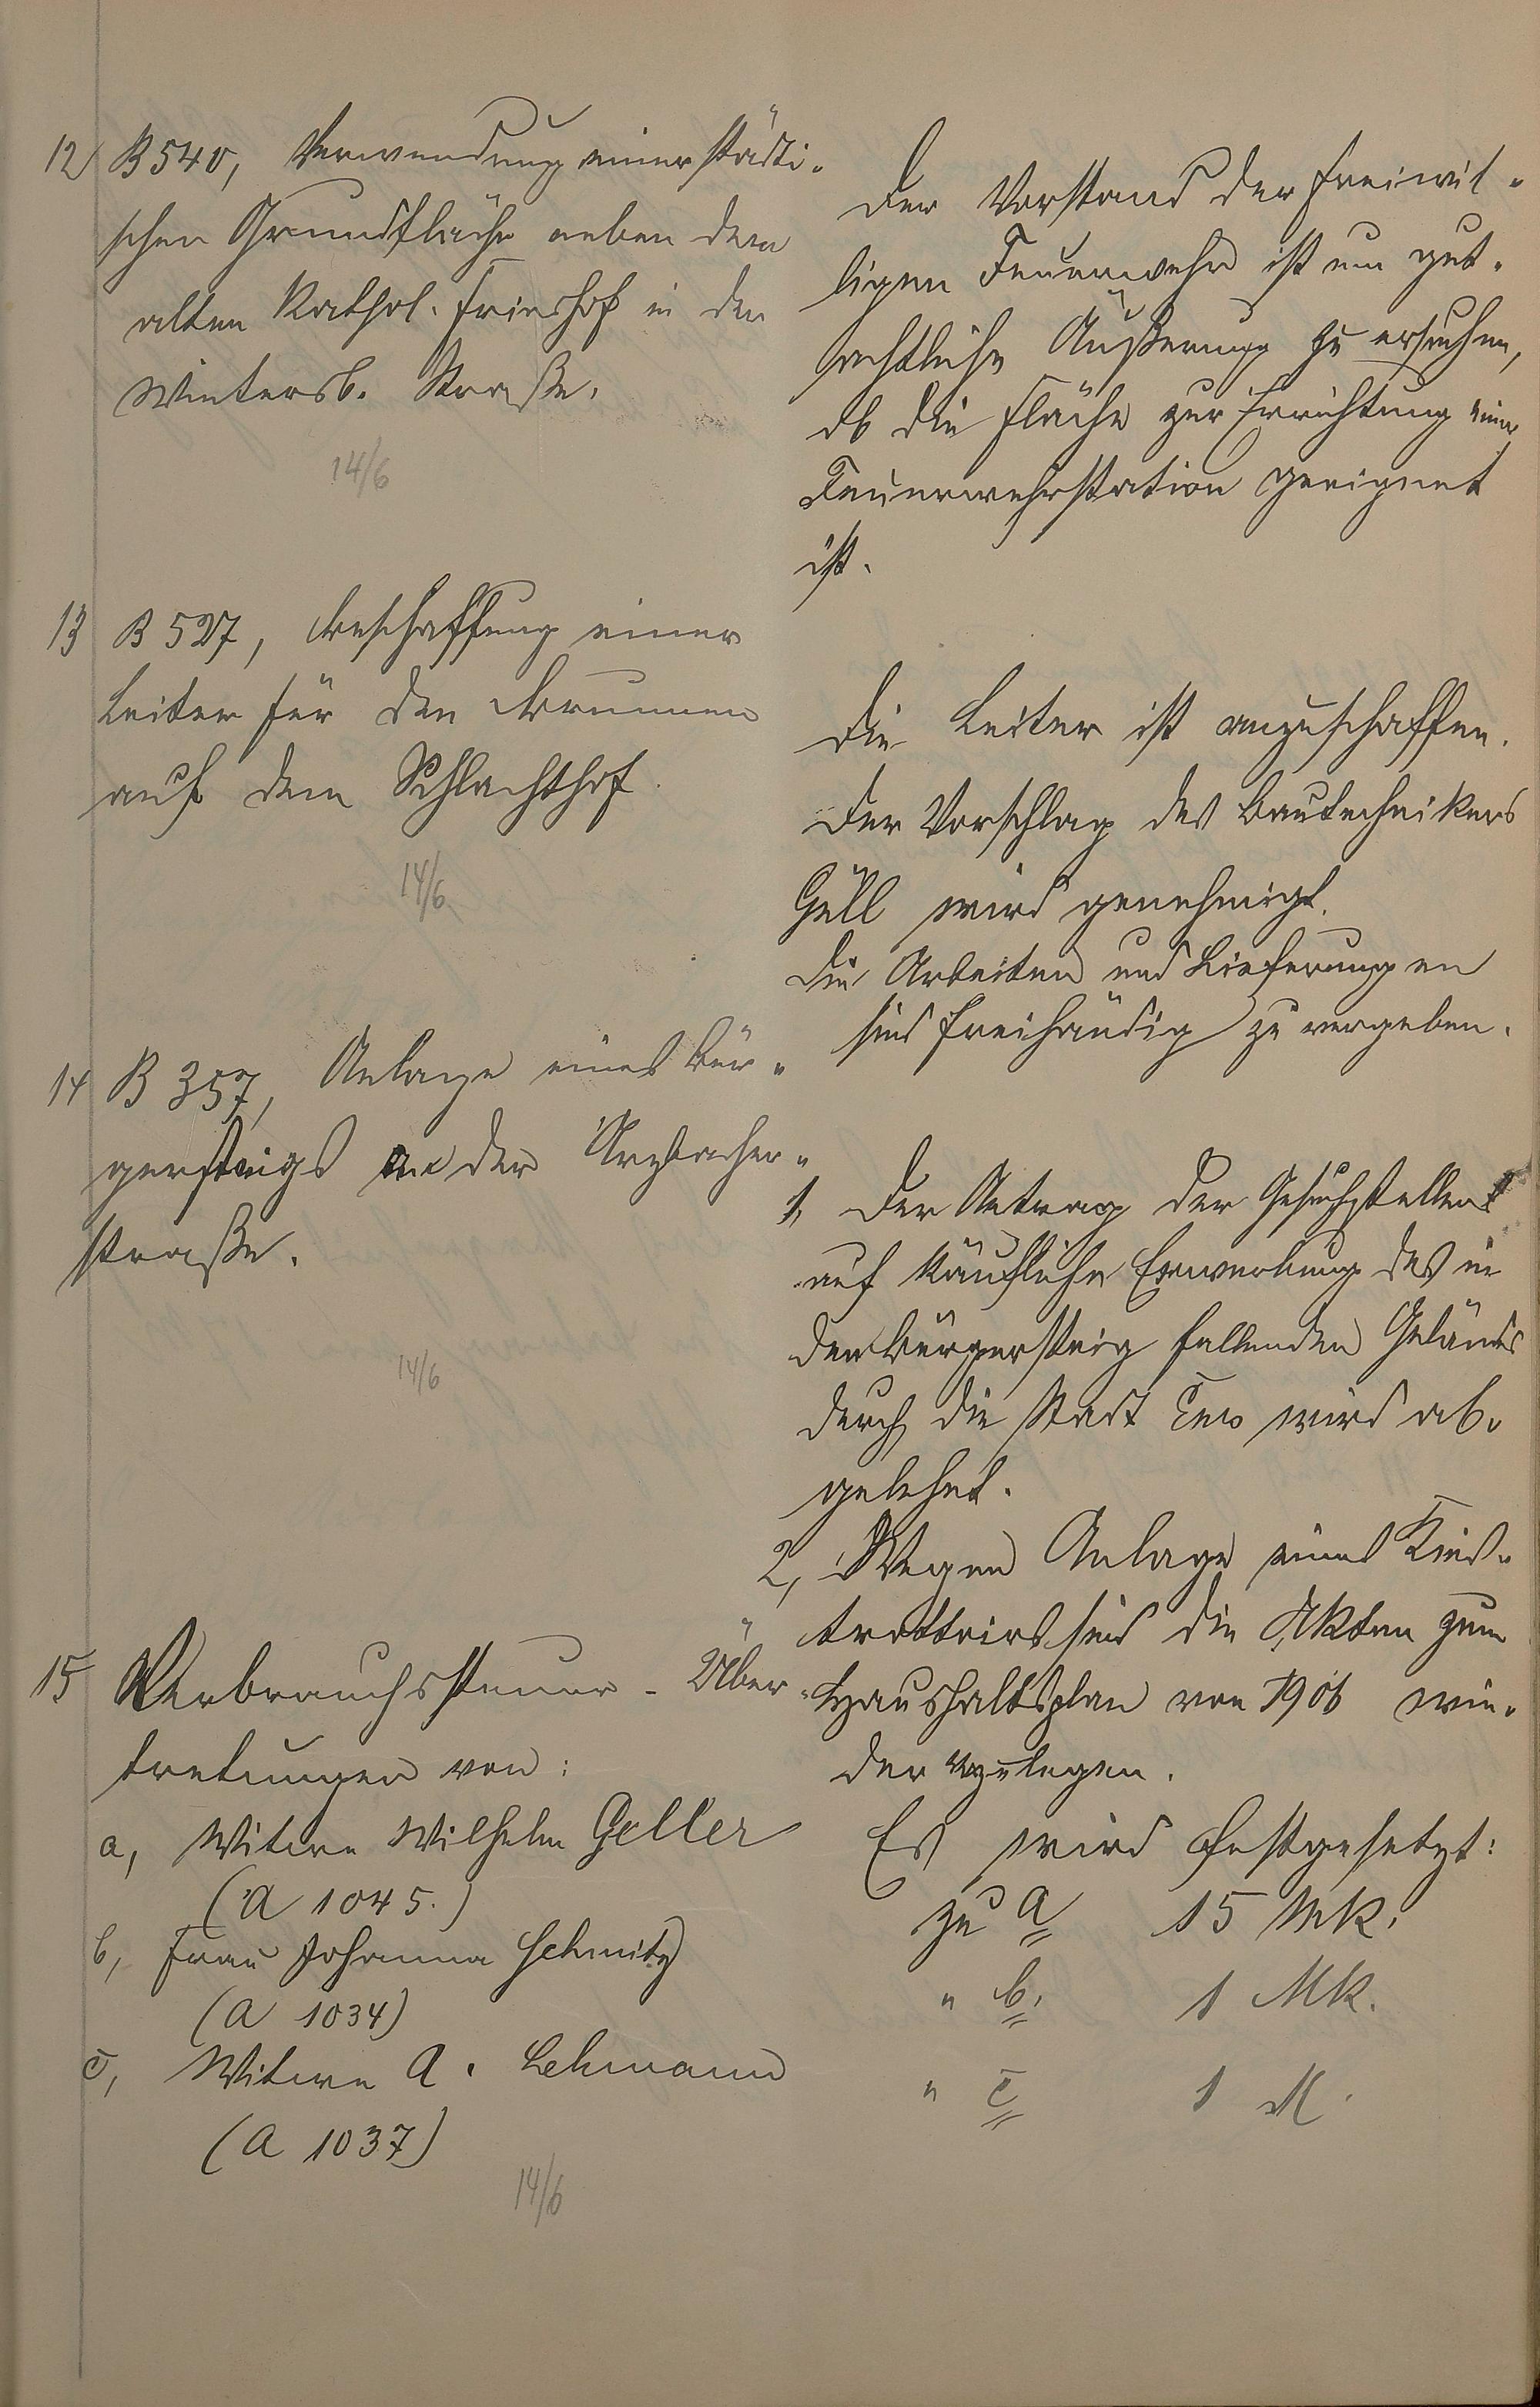 12 B 540, Verwendung einer städti-
schen Grundfläche neben dem
alten kathol. Friedhof in der
Wintersb. Straße.
14/6
Der Vorstand der freiwil-
ligen Feuerwehr ist um gut-
achtliche Äußerung zu ersuchen,
ob die Fläche zur Errichtung einer
Feuerwehrstation geeignet
ist.
13 B 527, Beschaffung einer
Leiter für den Brunnen
auf dem Schlachthof.
14/6
Die Leiter ist anzuschaffen.
Der Vorschlag des Bautechnikers
Güll wird genehmigt.
Die Arbeiten und Lieferungen
sind freihändig zu vergeben.
14 B 357, Anlage eines Bür-
gersteigs an der Arzbacher-
straße.
14/6
1, Der Antrag der Gesuchsteller
auf käufliche Erwerbung des in
den Bürgersteig fallenden Geländes
durch die Stadt Ems wird ab-
gelehnt.
2, Wegen Anlage eines Kies-
trottoirs sind die Akten zum
Haushaltsplan von 1906 wie-
der vorzulegen.
15 Verbrauchssteuer-Über-
tretungen von:
a, Witwe Wilhelm Geller
(A 1045.)
b, Frau Johanna Schmitz
(A 1034)
c, Witwe A. Lehmann
(A 1037)
14/6
Es wird festgesetzt:
zu a 15 Mk.
" b. 1 Mk.
" c 1 M.